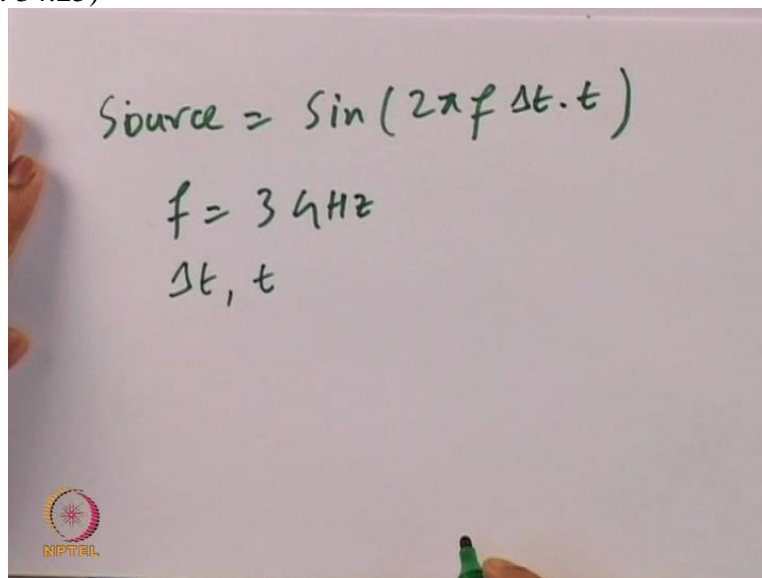 34:25)
Source = Sin (2π f Δt. t)
f = 3 GHz
Δt, t
NPTEL